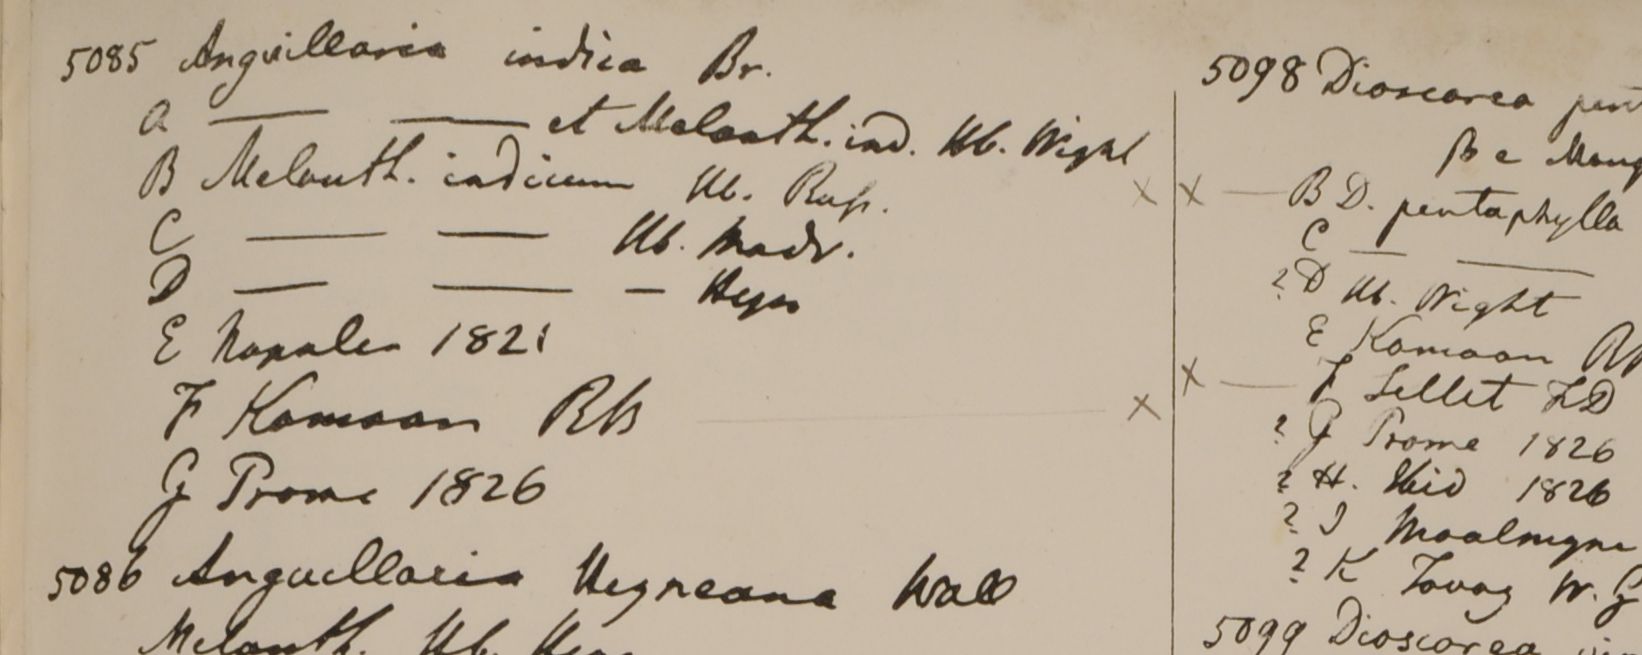 5085 Anguillaria indica Br.
a —— —— et Melanth. ind. Hb. Wight
B Melanth. indicum Hb. Russ.
C —— —— Hb. Madr.
D —— —— — Heyn
E Napalia 1821
F Kamaon RB
G Prome 1826
5086 Anguillaria Heyneana Wall
Melanth. Hb. Heyn
5098 Dioscorea pent
B D. pentaphylla
C —— ——
? D Hb. Wight
E Kamaon
F Sillet FD
? G Prome 1826
? H. Ibid 1826
? I Moalmyne
? K Tavoy W. G
5099 Dioscorea